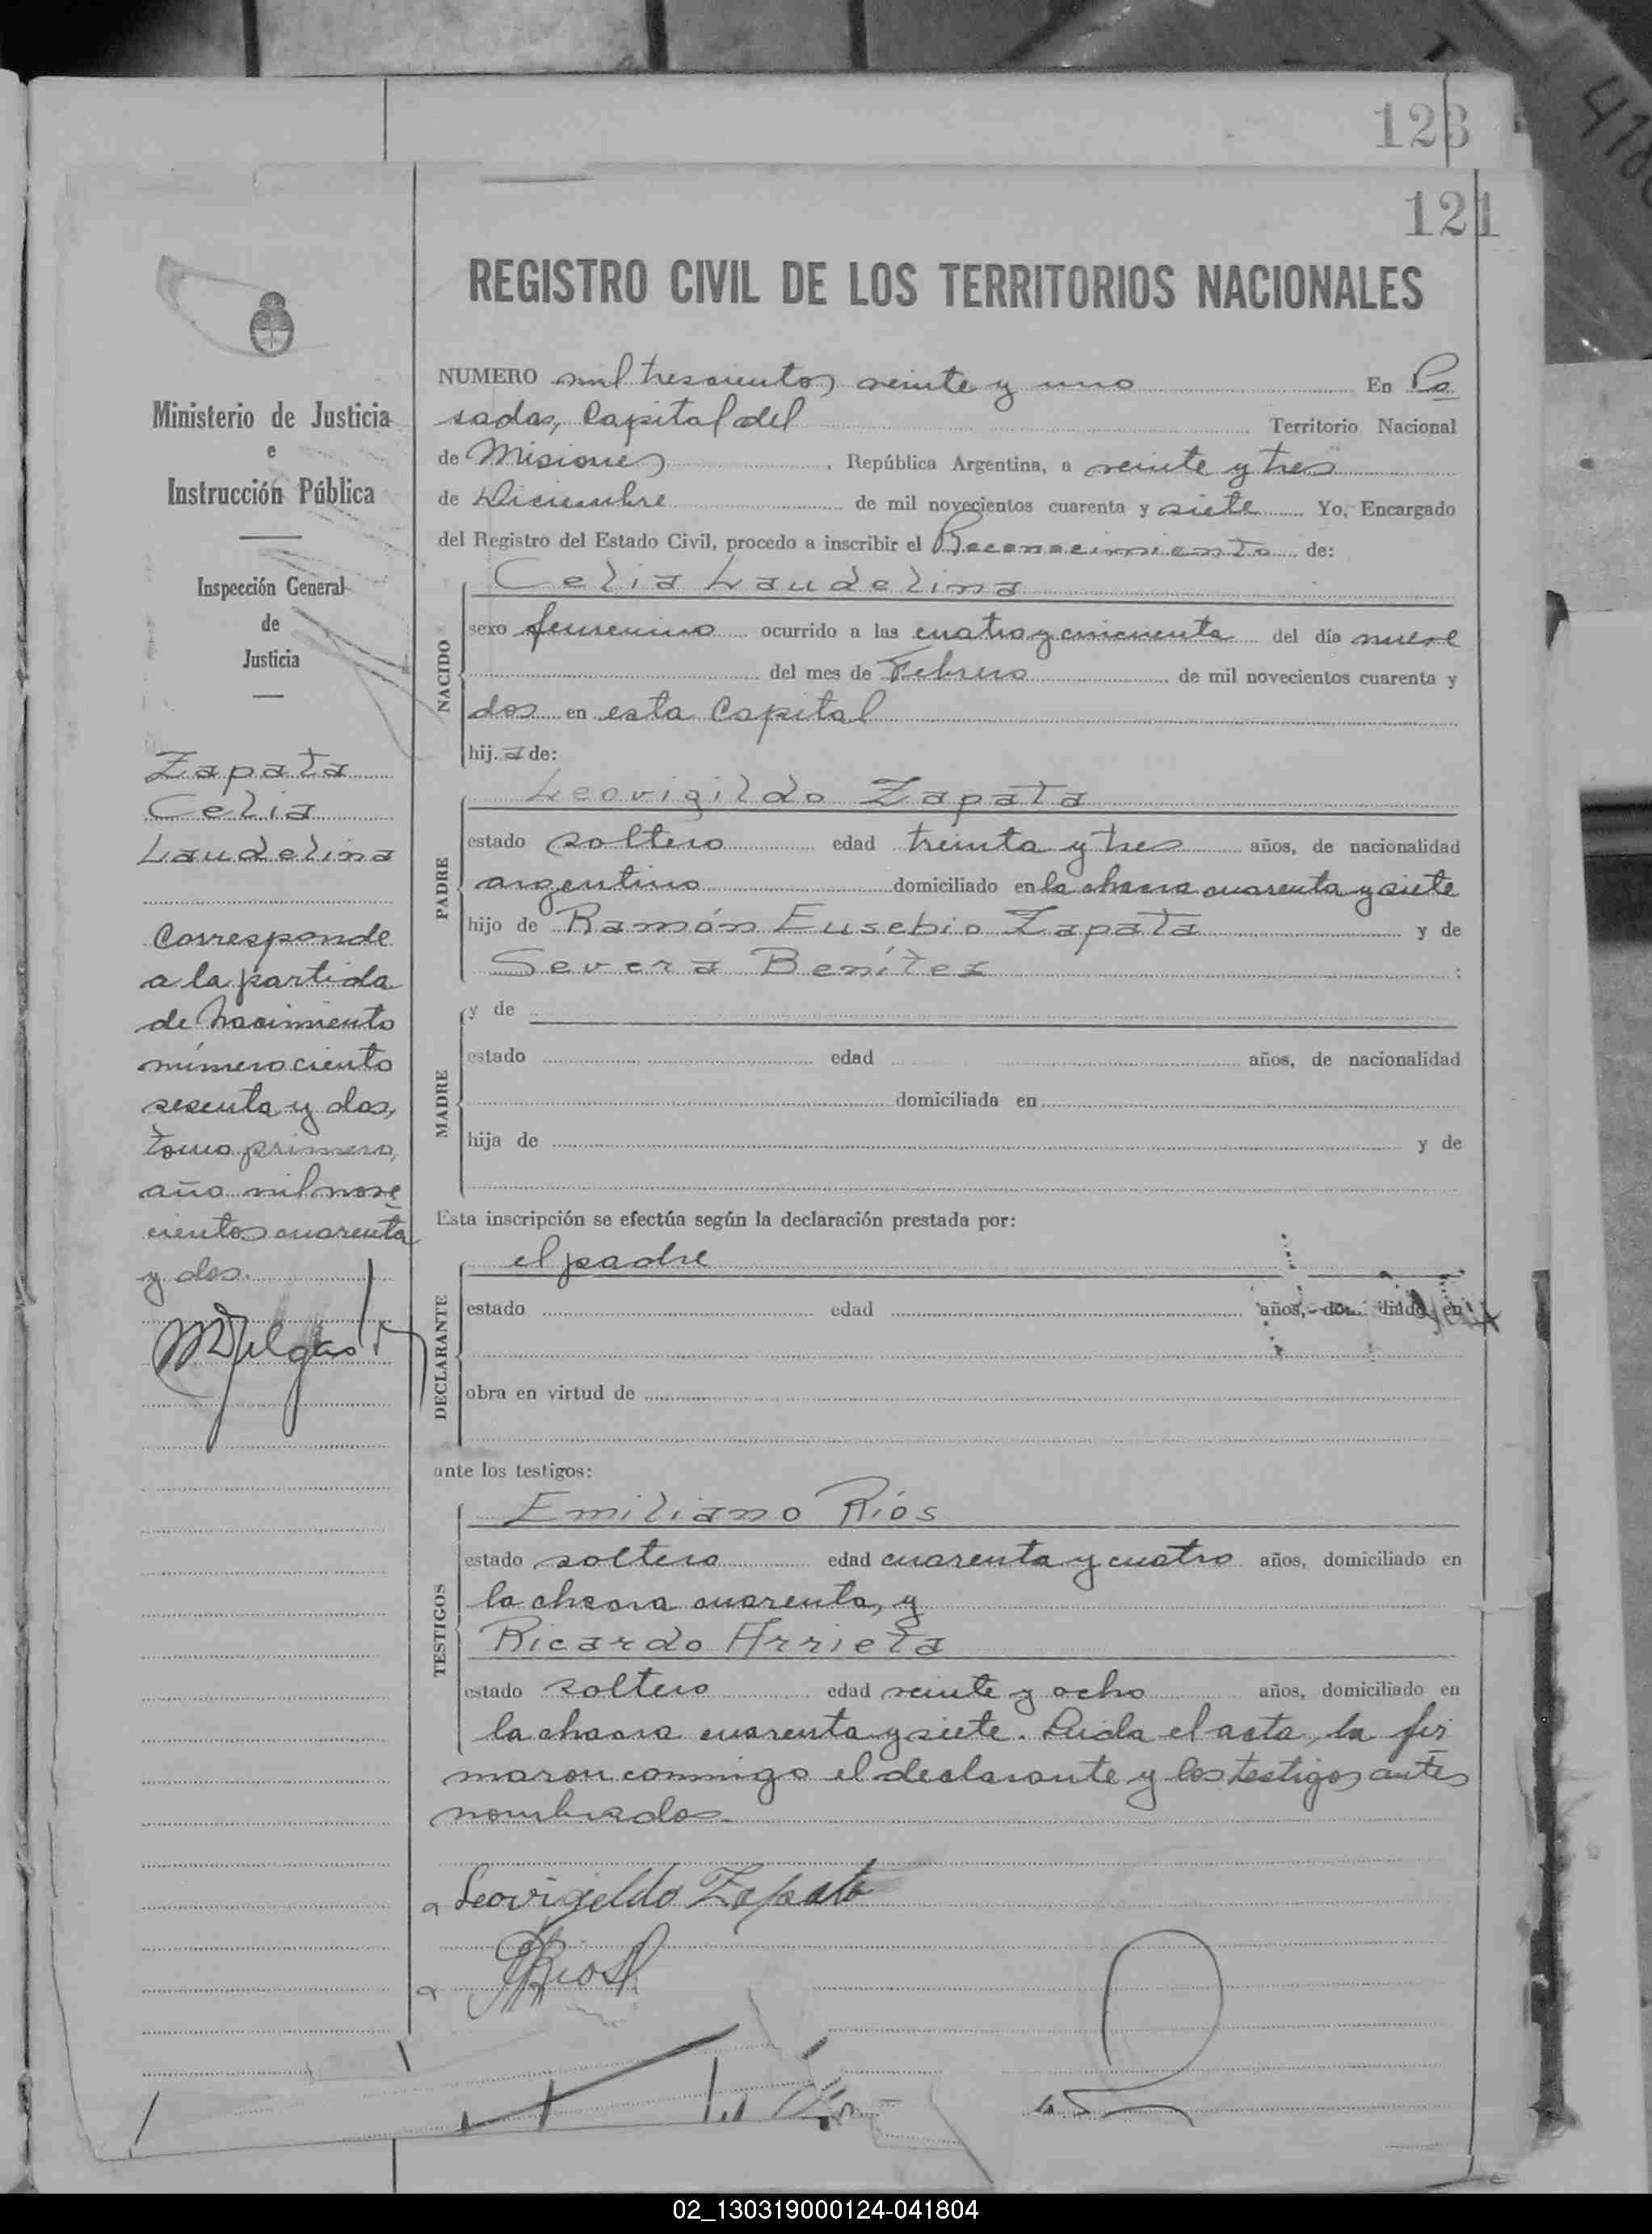 123
121
REGISTRO CIVIL DE LOS TERRITORIOS NACIONALES
Ministerio de Justicia
e
Instrucción Pública
Inspección General
de
Justicia
Zapata
Celia
Laudelina
Corresponde
a la partida
de Nacimiento
número ciento
sesenta y dos,
tomo primero,
año mil nove
cientos cuarenta
y dos.
NUMERO mil trescientos veinte y uno En Po
sadas, Capital del Territorio Nacional
de Misiones, República Argentina, a veinte y tres
de Diciembre de mil novecientos cuarenta y siete Yo, Encargado
del Registro del Estado Civil, procedo a inscribir el Reconocimiento de:
NACIDO
Celia Laudelina
sexo femenino ocurrido a las cuatro y cincuenta del día nueve
del mes de Febrero de mil novecientos cuarenta y
dos en esta Capital
hija de:
PADRE
Leovigildo Zapata
estado soltero edad treinta y tres años, de nacionalidad
argentino domiciliado en la chacra cuarenta y siete
hijo de Ramón Eusebio Zapata y de
Severa Benítez :
MADRE
y de
estado edad años, de nacionalidad
domiciliada en
hija de y de
Esta inscripción se efectúa según la declaración prestada por:
DECLARANTE
el padre
estado edad años, en
obra en virtud de
ante los testigos:
TESTIGOS
Emiliano Ríos
estado soltero edad cuarenta y cuatro años, domiciliado en
la chacra cuarenta, y
Ricardo Arrieta
estado soltero edad veinte y ocho años, domiciliado en
la chacra cuarenta y siete. Leida el acta, la fir
maron conmigo el declarante y los testigos antes
nombrados.
Leovigildo Zapata
02_130319000124-041804